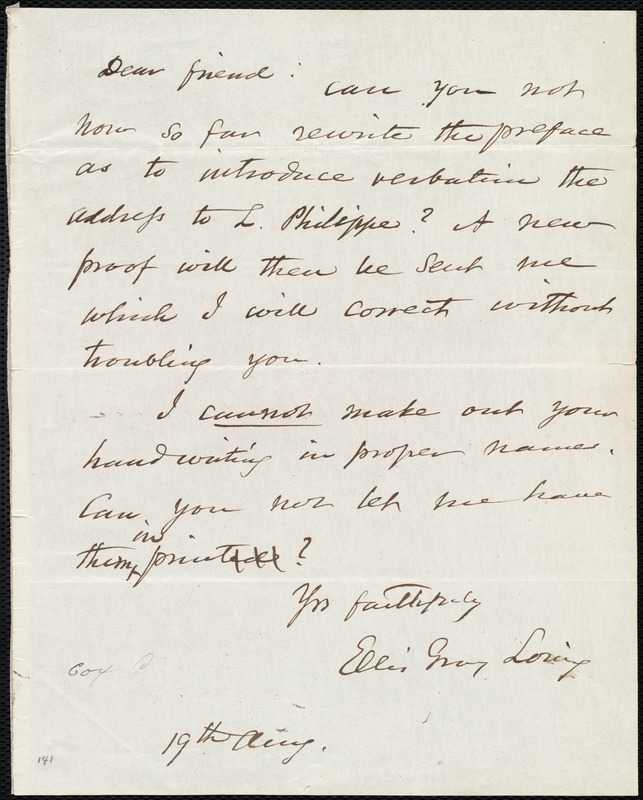 Dear friend: can you not
now so far rewrite the preface
as to introduce verbatim the
address to L. Philippe? A new
proof will then be sent me
which I will correct without
troubling you.
I cannot make out your
handwriting in proper names.
Can you not let me have
them in print ?
Yrs faithfully
Ellis Gray Loring
19th Aug.
141